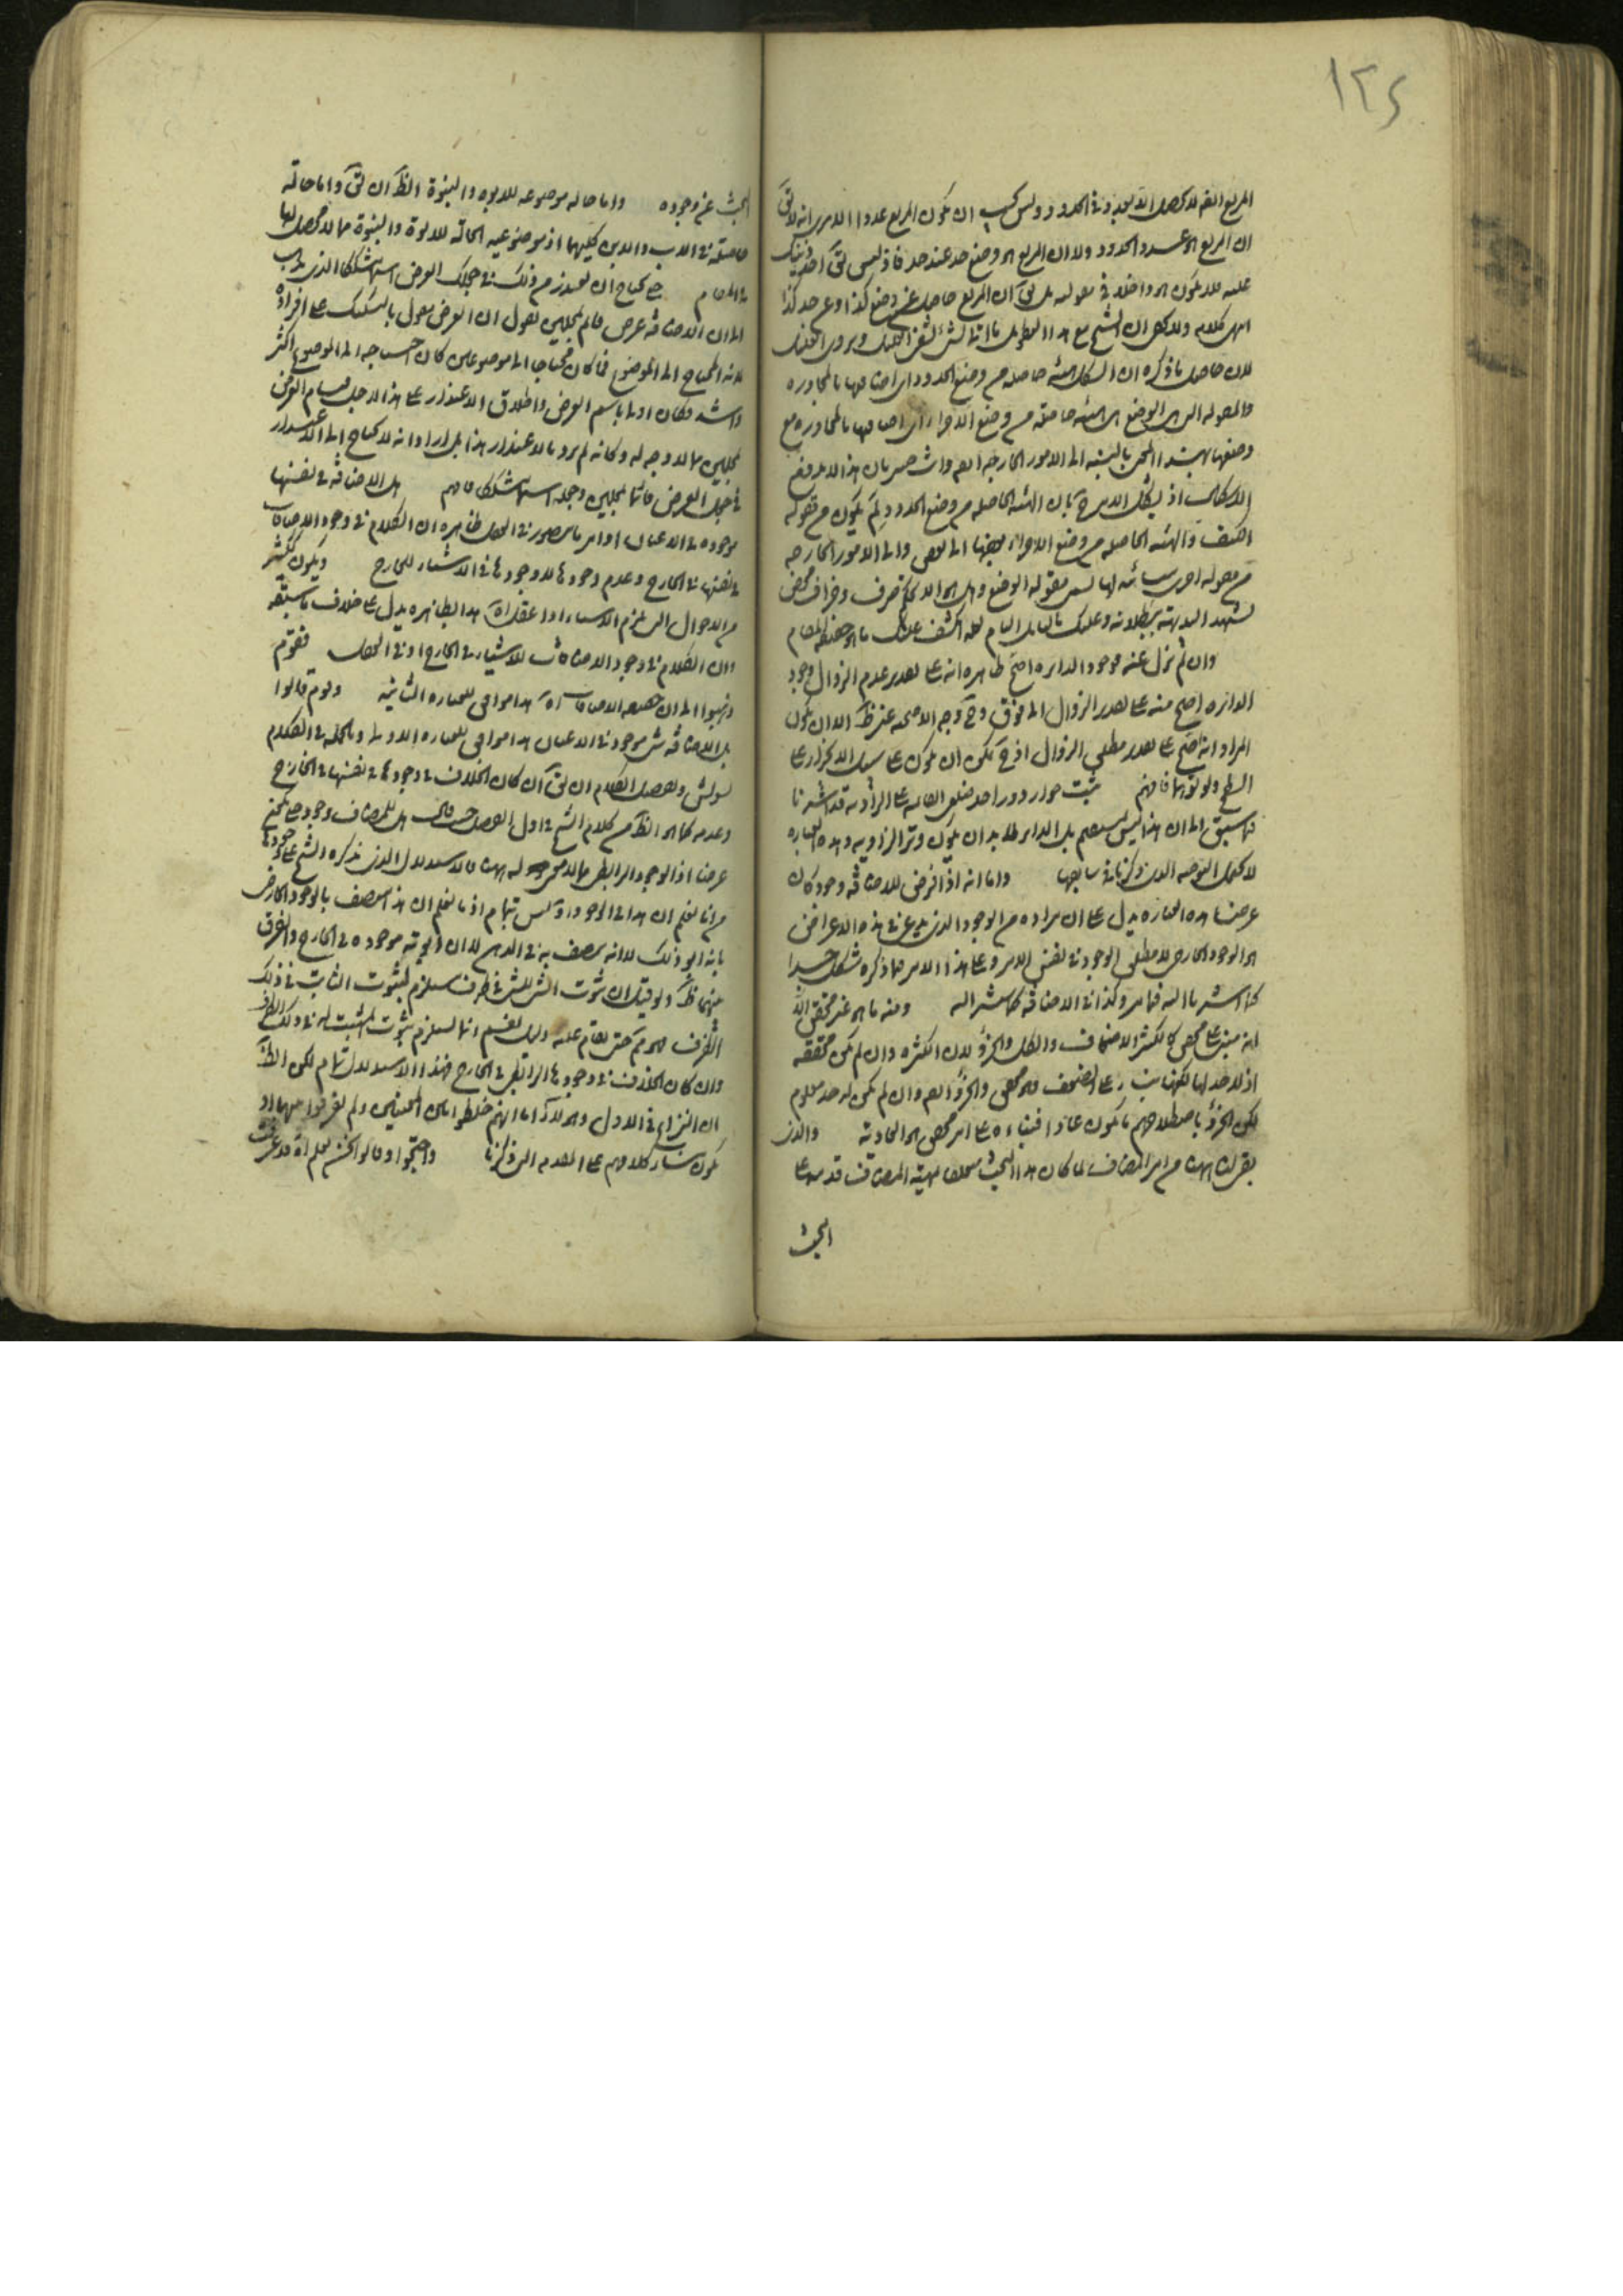 ١٢٤
المربع الغير لا يحصل الا بعدد في الحدود وليس يجب ان يكون المربع عددا الا مرى انه لا يق
ان المربع هو عدد الحدود ولا ان المربع هو وضع حد عند حد فاذ ليس يق احد ذينك
عليه فلا يكون هو داخلا في مقولته بل يق ان المربع حاصل عن وضع كذا وعن حد كذا
انتهى كلامه ولا يخفى ان الشيخ مع هذا التطويل ما اتى بشئ
لان حاصل ما ذكره ان الشكل هيئة حاصلة من وضع الحدود اى اضافتها بالمجاورة
والمقولة التي هي الوضع هي هيئة حاصلة من وضع الاجزاء اى اضافتها بالمجاورة مع
وضعها بهذا النحو بالنسبة الى الامور الخارجة ايضا وانت خبير بان هذا لا يدفع
الاشكال اذ لقائل ان يقول بان الهيئة الحاصلة من وضع الحدود لم يكون من مقولة
الكيف والهيئة الحاصلة من وضع الاجزاء بعضها الى بعض والى الامور الخارجة
من مقولة اخرى مباينة لها ليس مقولة الوضع وهل هو الا تحكم صرف وجزاف محض
تشهد البديهة ببطلانه وعليك بالتأمل التام لعله انكشف عليك ما هو حقيقة المقام
وان لم نزل عنه موجود الدائرة اصح ظاهره انه على تقدير عدم الزوال وجود
الدائرة اصح منه على تقدير الزوال الى فوق وح وجه الاصحية غير ظ الا ان يكون
المراد انه اصح على تقدير مطلق الزوال اذ ح يمكن ان يكون على سبيل الانجرار على
السطح ولو توهما فافهم يثبت جواز دور احد ضلعى القائمة على الزاوية قد اشرنا
فيما سبق الى ان هذا ليس بمستقيم بل الدائر لا بد ان يكون وتر الزاوية وهذه العبارة
لا تحتمل التوجيه الذى ذكرنا في سابقها واما انه اذا فرض للاضافة وجود كان
عرضا هذه العبارة يدل على ان مراده من الوجود الذى يدعى في هذه الاعراض
هو الوجود الخارجى لا مطلق الوجود في نفس الامر وعلى هذا الامر فيما ذكره مشكل جدا
كما اشرنا اليه فيما مر وكذا في الاضافة كما سنشير اليه ومنه ما هو غير محقق الظ
انه مبنى على محقق كالكثير الاضعاف والكل والجزؤ لان الكثرة وان لم يكن محققة
اذ لا حد لها لكنها بنيت على الضعف وهو محقق والجزؤ ايضا وان لم يكن له حد معلوم
لكن الجزؤ باصطلاحهم ما يكون عادا فبناءه على امر محقق هو العادية والذى
بقى لنا ههنا من امر المضاف لما كان هذا البحث متعلقا بهية المضاف قدمه على
البحث
البحث عن وجوده واما حالة موضوعة للابوة والبنوة الظ ان يق واما حالة
حاصلة في الاب والابن كليهما اذ موضوعية الحالة للابوة والبنوة مما لا محصل لها
في المقام حتى يحتاج ان يعتذر من ذلك في جعلك العرض اسما مشككا الذى ذهب
الى ان الاضافة عرض قائم بمحلين يقول ان العرض مقول بالتشكيك على افراده
لانه المحتاج الى الموضوع فما كان محتاجا الى موضوعين كان احتياجه الى الموضوع اكثر
واشد وكان اولى باسم العرض واطلاق الاعتذار على هذا لاجل قيام العرض
بمحلين مما لا وجه له وكانه لم يرد بالاعتذار هذا بل اراد انه لا يحتاج الى الاعتذار
في جعل العرض قائما بمحلين وجعله اسما مشككا فافهم هل الاضافة في نفسها
موجودة في الاعيان او امر ما متصور في العقل ظاهره ان الكلام في وجود الاضافات
في نفسها في الخارج وعدم وجودها لا وجودها في الاشياء للخارج ويكون لكثير
من الاحوال التي تلزم الاشياء اذا عقلت اه هذا بظاهره يدل على خلاف ما سبقه
وان الكلام في وجود الاضافات للاشياء في الخارج او في العقل فقوم
ذهبوا الى ان حقيقة الاضافات اه هذا موافق للعبارة الثانية وقوم قالوا
بل الاضافة شئ موجود في الاعيان هذا موافق للعبارة الاولى وبالجملة في الكلام
تشويش وتفصيل الكلام ان يق ان كان الخلاف في وجودها في نفسها في الخارج
وعدمه كما هو الظ من كلام الشيخ في اول الفصل حيث قال هل للمضاف وجود حتى يكون
عرضا اذ الوجود الرابطى مما لا محصل له ههنا فالاستدلال الذى ذكره الشيخ على وجودها
من انا نعلم ان هذا في الوجود اب ليس بتمام اذ ما نعلم ان هذا متصف بالوجود الخارجى
بانه ابو ذلك لا انه متصف به في الامر لا ان الابوة موجودة في الخارج والفرق
بينهما ظ ولو قيل ان ثبوت الشئ للشئ في ظرف مستلزم لثبوت الثابت في ذلك
الظرف فهو مم حتى يقام عليه دليل نعم انما يستلزم ثبوت المثبت له في ذلك الظرف
وان كان الخلاف في وجودها الرابطى في الخارج فهذا الاستدلال تمام لكن الظ
ان النزاع في الاول وهو لا ذا اما انهم خلطوا بين المعنيين ولم يفرقوا بينهما او
يكون بناء كلامهم على المقدمة التي ذكرنا واحتجوا وقالوا نحن نعلم اه قد عرفت